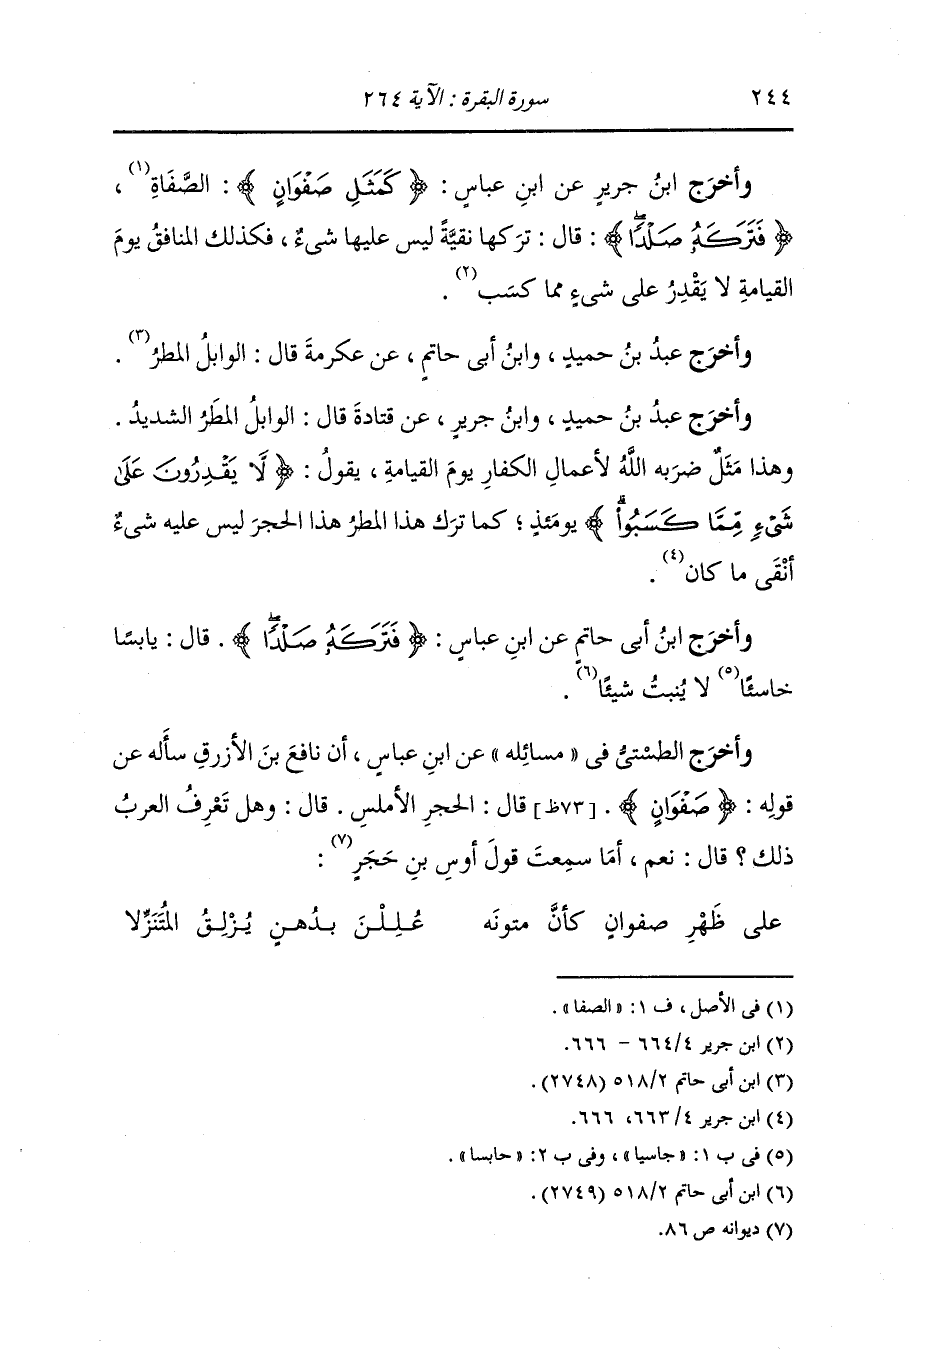 ٢٤٤ سورة البقرة : الآية ٢٦٤
وأخرَج ابنُ جريرٍ عن ابنِ عباسٍ : ﴿ كَمَثَلِ صَفْوَانٍ ﴾ : الصَّفَاةِ(١) ،
﴿ فَتَرَكَهُۥ صَلْدًاۖ ﴾ : قال : ترَكها نقيَّةً ليس عليها شىءٌ ، فكذلك المنافقُ يومَ
القيامةِ لا يَقْدِرُ على شىءٍ مما كسَب(٢) .
وأخرَج عبدُ بنُ حميدٍ ، وابنُ أبى حاتمٍ ، عن عكرمةَ قال : الوابلُ المطرُ(٣) .
وأخرَج عبدُ بنُ حميدٍ ، وابنُ جريرٍ ، عن قتادةَ قال : الوابلُ المطَرُ الشديدُ .
وهذا مَثَلٌ ضرَبه اللَّهُ لأعمالِ الكفارِ يومَ القيامةِ ، يقولُ : ﴿ لَّا يَقْدِرُونَ عَلَىٰ
شَىْءٍ مِّمَّا كَسَبُوا۟ۗ ﴾ يومَئذٍ ؛ كما ترَك هذا المطرُ هذا الحجرَ ليس عليه شىءٌ
أنْقَى ما كان(٤) .
وأخرَج ابنُ أبى حاتمٍ عن ابنِ عباسٍ : ﴿ فَتَرَكَهُۥ صَلْدًاۖ ﴾ . قال : يابسًا
خاسئًا(٥) لا يُنبتُ شيئًا(٦) .
وأخرَج الطسْتىُّ فى « مسائِله » عن ابنِ عباسٍ ، أن نافعَ بنَ الأزرقِ سأَله عن
قولِه : ﴿ صَفْوَانٍ ﴾ . [٧٣ظ] قال : الحجرِ الأملسِ . قال : وهل تَعْرِفُ العربُ
ذلك ؟ قال : نعم ، أمَا سمِعتَ قولَ أوسِ بنِ حَجَرٍ(٧) :
على ظَهْرِ صفوانٍ كأنَّ متونَه عُـلِـلْـنَ بـدُهـنٍ يُـزْلِـقُ المُتَنَزِّلا
(١) فى الأصل ، ف ١: «الصفا» .
(٢) ابن جرير ٤/ ٦٦٤ - ٦٦٦.
(٣) ابن أبى حاتم ٢/ ٥١٨ (٢٧٤٨) .
(٤) ابن جرير ٤/ ٦٦٣، ٦٦٦.
(٥) فى ب ١: «جاسيا» ، وفى ب ٢: «حابسا» .
(٦) ابن أبى حاتم ٢/ ٥١٨ (٢٧٤٩) .
(٧) ديوانه ص ٨٦.